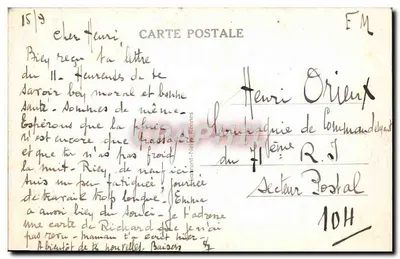 15/9
F M
CARTE POSTALE
Cher Henri,
Bien reçu ta lettre
du 11 - Heureuses de te
savoir bon moral et bonne
santé - Sommes de même -
Espérons que la pluie
n'est encore que passagère
et que tu n'as pas froid
la nuit - Rien de neuf ici
suis un peu fatiguée journée
de travail trop longue. Emma
a aussi bien du souci - Je t'adresse
une carte de Richard que je n'ai
pas revu - maman t'a écrit hier -
A bientôt de tes nouvelles. Baisers
Henri Orieux
Compagnie de Commandement
du 71ème R. I
Secteur Postal
104